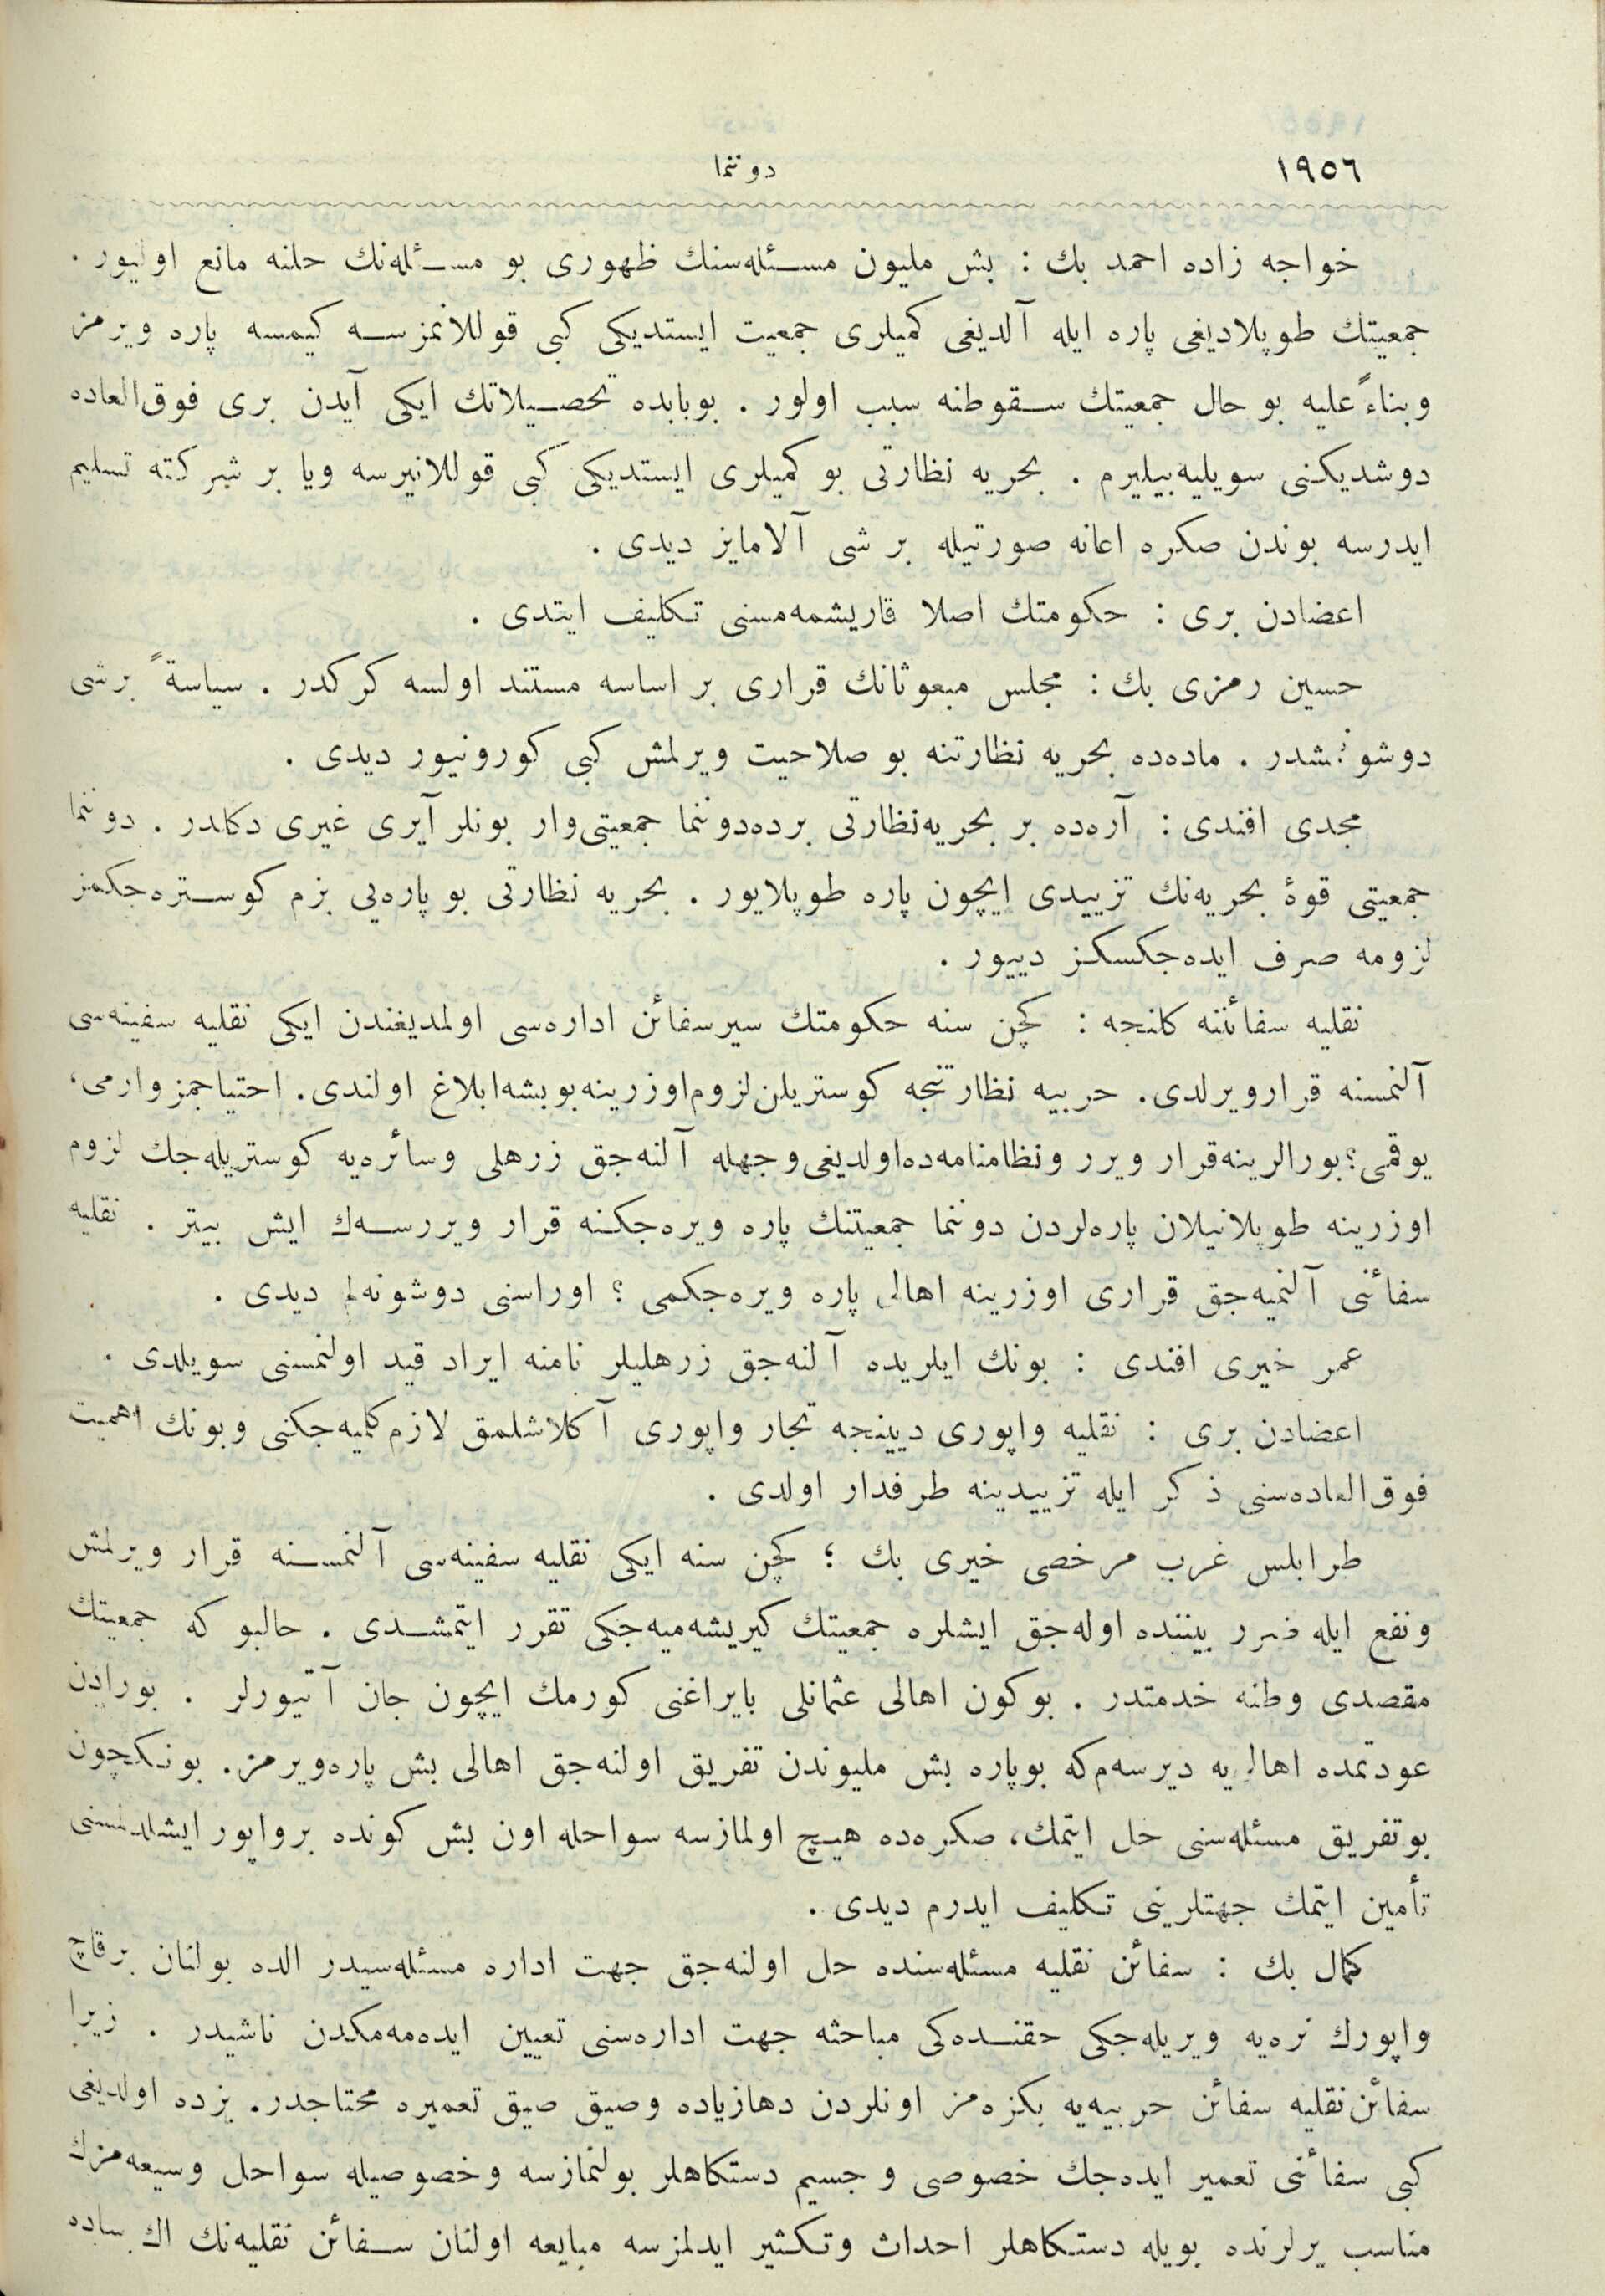 ١٩٥٦
دوننما
خواجه زاده احمد بك : بش مليون مسئله‌سنك ظهوری بو مسئله‌نك حلنه مانع اوليور .
جمعيتك طوپلاديغی پاره ايله آلديغی كميلری جمعيت ايستديكی كبی قوللانمزسه كيمسه پاره ويرمز
وبناءً عليه بو حال جمعيتك سقوطنه سبب اولور . بوبابده تحصيلاتك ايكی آيدن بری فوق‌العاده
دوشديكنی سويليه‌بيليرم . بحريه نظارتی بو كميلری ايستديكی كبی قوللانيرسه ويا بر شركته تسليم
ايدرسه بوندن صكره اعانه صورتيله بر شی آلامايز ديدی .
اعضادن بری : حكومتك اصلا قاريشمه‌مسنی تكليف ايتدی .
حسين رمزی بك : مجلس مبعوثانك قراری بر اساسه مستند اولسه كركدر . سياسةً برشی
دوشونمشدر . ماده‌ده بحريه نظارتنه بو صلاحيت ويرلمش كبی كورونيور ديدی .
مجدی افندی : آره‌ده بر بحريه‌نظارتی برده‌دوننما جمعيتی‌وار بونلر آيری غيری دكلدر . دوننما
جمعيتی قوۀ بحريه‌نك تزييدی ايچون پاره طوپلايور . بحريه نظارتی بو پاره‌يی بزم كوستره‌جكمز
لزومه صرف ايده‌جكسكز ديیور .
نقليه سفائننه كلنجه : كچن سنه حكومتك سيرسفائن اداره‌سی اولمديغندن ايكی نقليه سفينه‌سی
آلنمسنه قرارويرلدی. حربيه نظارتنجه كوستريلن‌لزوم‌اوزرينه‌بوبشه‌ابلاغ اولندی. احتياجمز وارمی،
يوقمی؟بورالرينه‌قرار ويرر ونظامنامه‌ده‌اولديغی‌وجهله آلنه‌جق زرهلی وسائره‌يه كوستريله‌جك لزوم
اوزرينه طوپلانيلان پاره‌لردن دوننما جمعيتنك پاره ويره‌جكنه قرار ويررسه‌ك ايش بيتر . نقليه
سفائنی آلنميه‌جق قراری اوزرينه اهالی پاره ويره‌جكمی ؟ اوراسنی دوشونه‌لم ديدی .
عمر خيری افندی : بونك ايلريده آلنه‌جق زرهليلر نامنه ايراد قيد اولنمسنی سويلدی .
اعضادن بری : نقليه واپوری ديينجه تجار واپوری آكلاشلمق لازم‌كليه‌جكنی وبونك اهميت
فوق‌العاده‌سنی ذكر ايله تزييدينه طرفدار اولدی .
طرابلس غرب مرخصی خيری بك ؛ كچن سنه ايكی نقليه سفينه‌سی آلنمسنه قرار ويرلمش
ونفع ايله ضرر بيننده اوله‌جق ايشلره جمعيتك كيريشه‌ميه‌جكی تقرر ايتمشدی . حالبو كه جمعيتك
مقصدی وطنه خدمتدر . بوكون اهالی عثمانلی بايراغنی كورمك ايچون جان آتيورلر . بورادن
عودتمده اهالی‌يه ديرسه‌م‌كه بوپاره بش مليوندن تفريق اولنه‌جق اهالی بش پاره‌ويرمز. بونكچون
بوتفريق مسئله‌سنی حل ايتمك، صكره‌ده هيچ اولمازسه سواحله اون بش كونده برواپور ايشلدلمسنی
تأمين ايتمك جهتلرينی تكليف ايدرم ديدی .
كمال بك : سفائن نقليه مسئله‌سنده حل اولنه‌جق جهت اداره مسئله‌سيدر الده بولنان برقاچ
واپورك نره‌يه ويريله‌جكی حقنده‌كی مباحثه جهت اداره‌سنی تعيين ايده‌مه‌مكدن ناشيدر . زيرا
سفائن‌نقليه سفائن حربيه‌يه بكزه‌مز اونلردن دهازياده وصيق صيق تعميره محتاجدر. بزده اولديغی
كبی سفائنی تعمير ايده‌جك خصوصی و جسيم دستكاهلر بولنمازسه وخصوصيله سواحل وسيعه‌مزك
مناسب يرلرنده بويله دستكاهلر احداث وتكثير ايدلمزسه مبايعه اولنان سفائن نقليه‌نك اك ساده